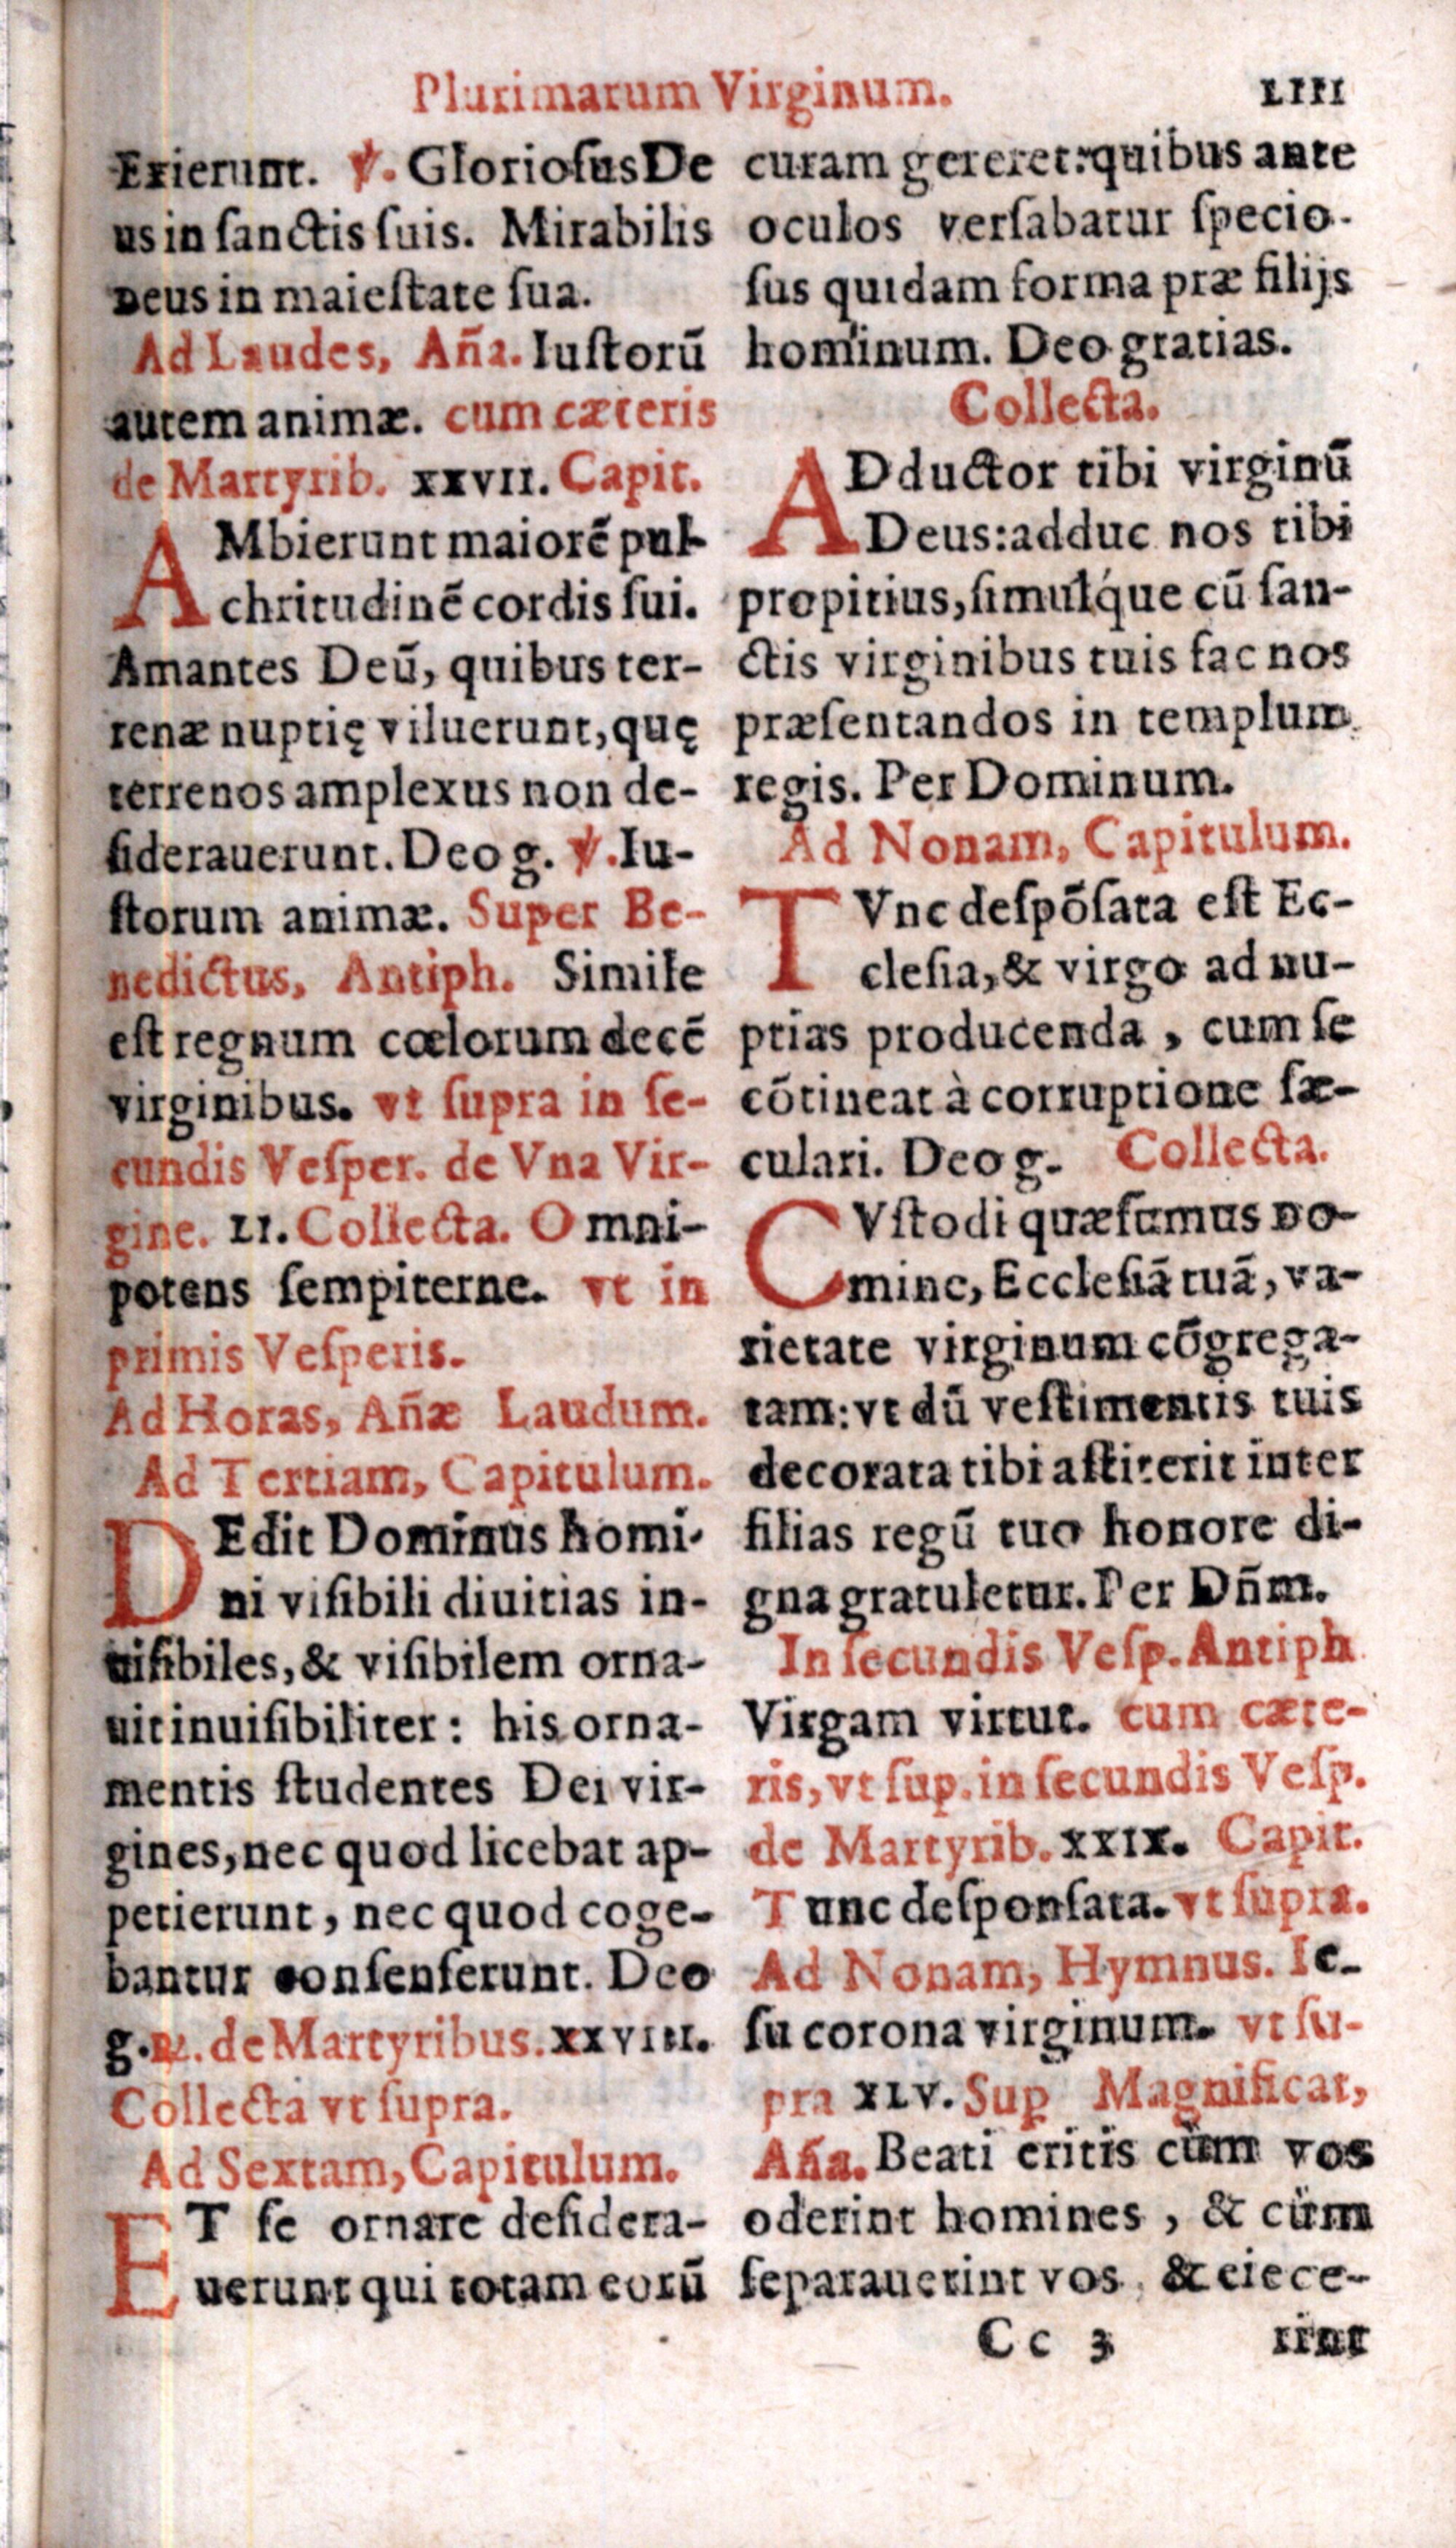 Plurimarum Virginum. LIII
Exierunt. ℣. Gloriosus De
us in sanctis suis. Mirabilis
Deus in maiestate sua.
Ad Laudes, Aña. Iustorū
autem animæ. cum cæteris
de Martyrib. XXVII. Capit.
AMbierunt maiorē pul-
chritudinē cordis sui.
Amantes Deū, quibus ter-
renæ nuptię viluerunt, quę
terrenos amplexus non de-
siderauerunt. Deo g. ℣. Iu-
storum animæ. Super Be-
nedictus, Antiph. Simile
est regnum cœlorum decē
virginibus. vt supra in se-
cundis Vesper. de Vna Vir-
gine. LI. Collecta. Omni-
potens sempiterne. vt in
primis Vesperis.
Ad Horas, Añæ Laudum.
Ad Tertiam, Capitulum.
DEdit Dominus homi-
ni visibili diuitias in-
uisibiles, & visibilem orna-
uit inuisibiliter: his orna-
mentis studentes Dei vir-
gines, nec quod licebat ap-
petierunt, nec quod coge-
bantur consenserunt. Deo
g. ℟. de Martyribus. XXVIII.
Collecta vt supra.
Ad Sextam, Capitulum.
ET se ornare desidera-
uerunt qui totam eorū
curam gereret: quibus ante
oculos versabatur specio-
sus quidam forma præ filijs
hominum. Deo gratias.
Collecta.
ADductor tibi virginū
Deus: adduc nos tibi
propitius, simulq́ue cū san-
ctis virginibus tuis fac nos
præsentandos in templum
regis. Per Dominum.
Ad Nonam, Capitulum.
TVnc despōsata est Ec-
clesia, & virgo ad nu-
ptias producenda, cum se
cōtineat à corruptione sæ-
culari. Deo g. Collecta.
CVstodi quæsumus Do-
mine, Ecclesiā tuā, va-
rietate virginum cōgrega-
tam: vt dū vestimentis tuis
decorata tibi astiterit inter
filias regū tuo honore di-
gna gratuletur. Per Dñm.
In secundis Vesp. Antiph
Virgam virtut. cum cæte-
ris, vt sup. in secundis Vesp.
de Martyrib. XXIX. Capit.
Tunc desponsata. vt supra.
Ad Nonam, Hymnus. Ie-
su corona virginum. vt su-
pra XLV. Sup Magnificat,
Aña. Beati eritis cùm vos
oderint homines, & cùm
separauerint vos, & eiece-
Cc 3 rint